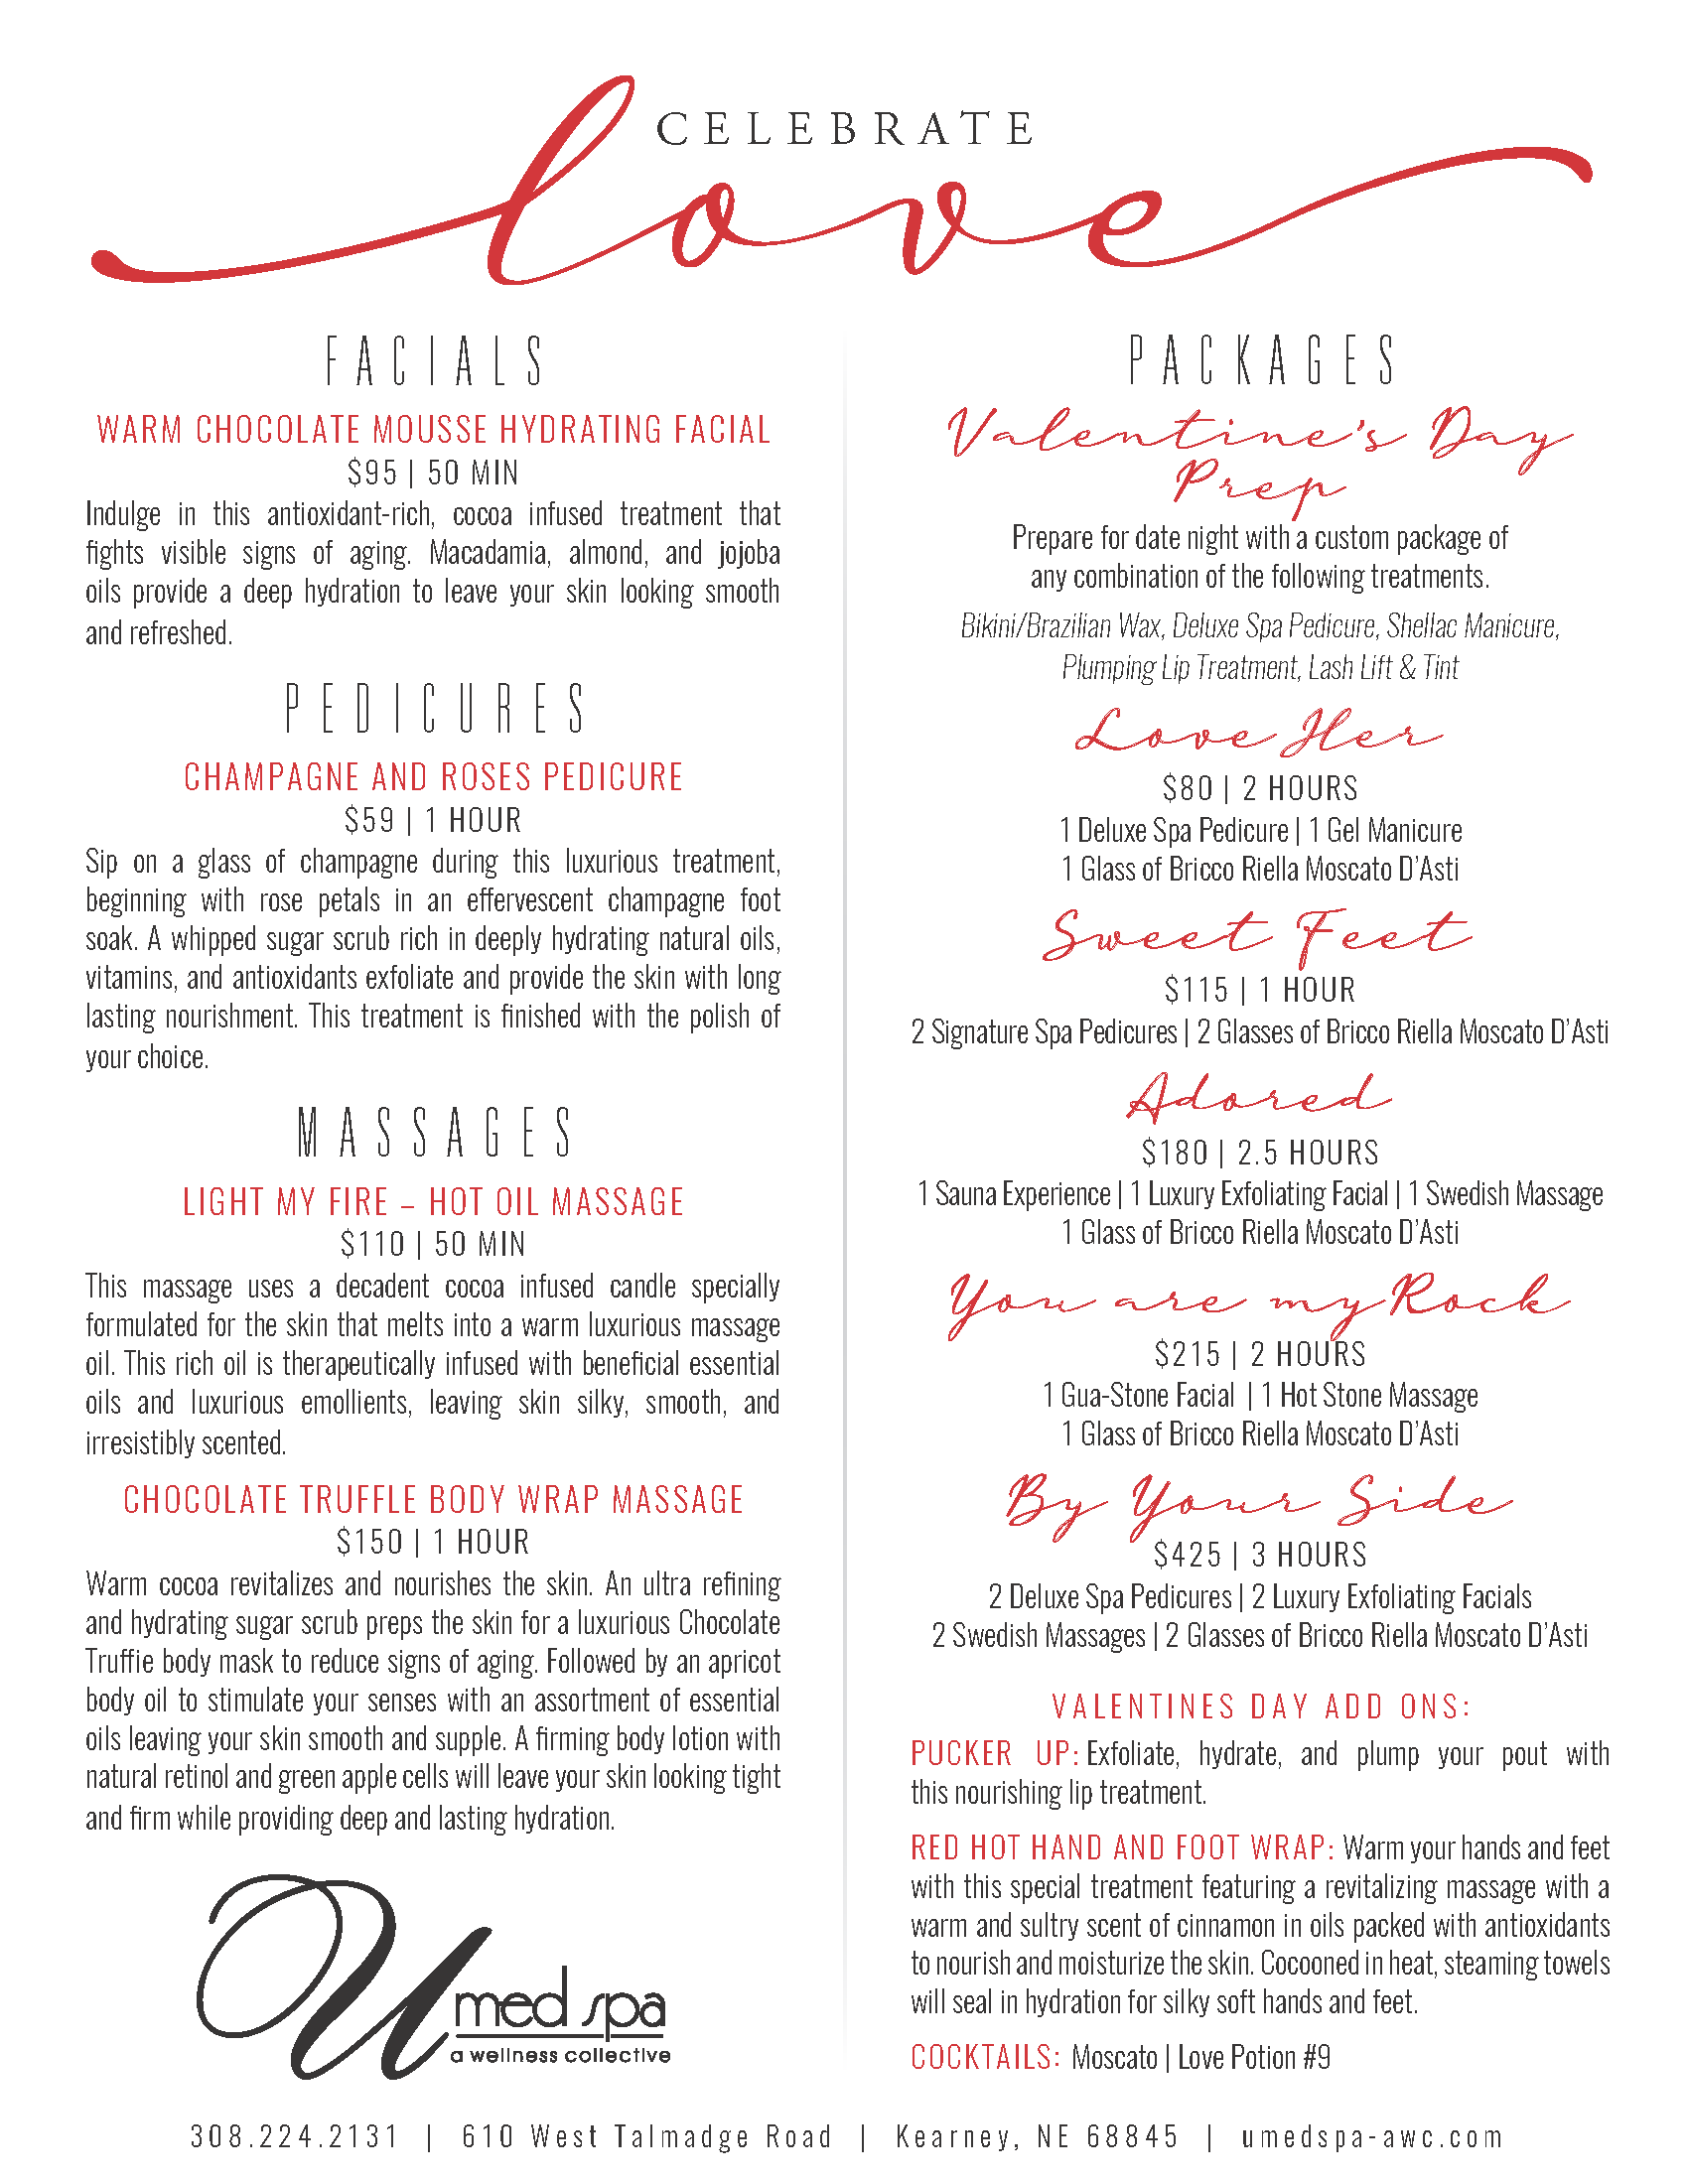 CELEBRATE
love
FACIALS
WARM CHOCOLATE MOUSSE HYDRATING FACIAL
$95 | 50 MIN
Indulge in this antioxidant-rich, cocoa infused treatment that
fights visible signs of aging. Macadamia, almond, and jojoba
oils provide a deep hydration to leave your skin looking smooth
and refreshed.
PEDICURES
CHAMPAGNE AND ROSES PEDICURE
$59 | 1 HOUR
Sip on a glass of champagne during this luxurious treatment,
beginning with rose petals in an effervescent champagne foot
soak. A whipped sugar scrub rich in deeply hydrating natural oils,
vitamins, and antioxidants exfoliate and provide the skin with long
lasting nourishment. This treatment is finished with the polish of
your choice.
MASSAGES
LIGHT MY FIRE – HOT OIL MASSAGE
$110 | 50 MIN
This massage uses a decadent cocoa infused candle specially
formulated for the skin that melts into a warm luxurious massage
oil. This rich oil is therapeutically infused with beneficial essential
oils and luxurious emollients, leaving skin silky, smooth, and
irresistibly scented.
CHOCOLATE TRUFFLE BODY WRAP MASSAGE
$150 | 1 HOUR
Warm cocoa revitalizes and nourishes the skin. An ultra refining
and hydrating sugar scrub preps the skin for a luxurious Chocolate
Truffie body mask to reduce signs of aging. Followed by an apricot
body oil to stimulate your senses with an assortment of essential
oils leaving your skin smooth and supple. A firming body lotion with
natural retinol and green apple cells will leave your skin looking tight
and firm while providing deep and lasting hydration.
U med spa
a wellness collective
PACKAGES
Valentine's Day
Prep
Prepare for date night with a custom package of
any combination of the following treatments.
Bikini/Brazilian Wax, Deluxe Spa Pedicure, Shellac Manicure,
Plumping Lip Treatment, Lash Lift & Tint
Love Her
$80 | 2 HOURS
1 Deluxe Spa Pedicure | 1 Gel Manicure
1 Glass of Bricco Riella Moscato D'Asti
Sweet Feet
$115 | 1 HOUR
2 Signature Spa Pedicures | 2 Glasses of Bricco Riella Moscato D'Asti
Adored
$180 | 2.5 HOURS
1 Sauna Experience | 1 Luxury Exfoliating Facial | 1 Swedish Massage
1 Glass of Bricco Riella Moscato D'Asti
You are my Rock
$215 | 2 HOURS
1 Gua-Stone Facial | 1 Hot Stone Massage
1 Glass of Bricco Riella Moscato D'Asti
By Your Side
$425 | 3 HOURS
2 Deluxe Spa Pedicures | 2 Luxury Exfoliating Facials
2 Swedish Massages | 2 Glasses of Bricco Riella Moscato D'Asti
VALENTINES DAY ADD ONS:
PUCKER UP: Exfoliate, hydrate, and plump your pout with
this nourishing lip treatment.
RED HOT HAND AND FOOT WRAP: Warm your hands and feet
with this special treatment featuring a revitalizing massage with a
warm and sultry scent of cinnamon in oils packed with antioxidants
to nourish and moisturize the skin. Cocooned in heat, steaming towels
will seal in hydration for silky soft hands and feet.
COCKTAILS: Moscato | Love Potion #9
308.224.2131 | 610 West Talmadge Road | Kearney, NE 68845 | umedspa-awc.com